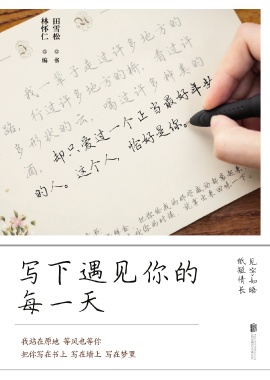 田雪松 ◎ 书
林怀仁 ◎ 编
我一辈子走过许多地方的
路，行过许多地方的桥，看过许
多形状的云，喝过许多种类的
酒，却只爱过一个正当最好年龄
的人。这个人，恰好是你。
写下遇见你的
每一天
见字如晤
纸短情长
我站在原地 等风也等你
把你写在书上 写在墙上 写在梦里